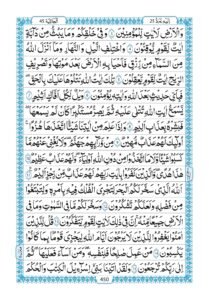 الجاثية ٤٥
اليه يرد ٢٥
وَالْاَرْضِ لَاٰيٰتٍ لِّلْمُؤْمِنِيْنَ وَفِيْ خَلْقِكُمْ وَمَا يَبُثُّ مِنْ دَآبَّةٍ
اٰيٰتٌ لِّقَوْمٍ يُّوْقِنُوْنَ وَاخْتِلَافِ الَّيْلِ وَالنَّهَارِ وَمَآ اَنْزَلَ اللّٰهُ
مِنَ السَّمَآءِ مِنْ رِّزْقٍ فَاَحْيَا بِهِ الْاَرْضَ بَعْدَ مَوْتِهَا وَتَصْرِيْفِ
الرِّيٰحِ اٰيٰتٌ لِّقَوْمٍ يَّعْقِلُوْنَ تِلْكَ اٰيٰتُ اللّٰهِ نَتْلُوْهَا عَلَيْكَ بِالْحَقِّ
فَبِاَيِّ حَدِيْثٍ بَعْدَ اللّٰهِ وَاٰيٰتِهٖ يُؤْمِنُوْنَ وَيْلٌ لِّكُلِّ اَفَّاكٍ
اَثِيْمٍ يَّسْمَعُ اٰيٰتِ اللّٰهِ تُتْلٰى عَلَيْهِ ثُمَّ يُصِرُّ مُسْتَكْبِرًا كَاَنْ لَّمْ يَسْمَعْهَا
فَبَشِّرْهُ بِعَذَابٍ اَلِيْمٍ وَاِذَا عَلِمَ مِنْ اٰيٰتِنَا شَيْـًٔا اتَّخَذَهَا هُزُوًا
اُولٰٓئِكَ لَهُمْ عَذَابٌ مُّهِيْنٌ مِنْ وَّرَآئِهِمْ جَهَنَّمُ وَلَا يُغْنِيْ عَنْهُمْ مَّا
كَسَبُوْا شَيْـًٔا وَّلَا مَا اتَّخَذُوْا مِنْ دُوْنِ اللّٰهِ اَوْلِيَآءَ وَلَهُمْ عَذَابٌ عَظِيْمٌ
هٰذَا هُدًى وَالَّذِيْنَ كَفَرُوْا بِاٰيٰتِ رَبِّهِمْ لَهُمْ عَذَابٌ مِّنْ رِّجْزٍ اَلِيْمٌ
اَللّٰهُ الَّذِيْ سَخَّرَ لَكُمُ الْبَحْرَ لِتَجْرِيَ الْفُلْكُ فِيْهِ بِاَمْرِهٖ وَلِتَبْتَغُوْا
مِنْ فَضْلِهٖ وَلَعَلَّكُمْ تَشْكُرُوْنَ وَسَخَّرَ لَكُمْ مَّا فِي السَّمٰوٰتِ وَمَا فِي
الْاَرْضِ جَمِيْعًا مِّنْهُ اِنَّ فِيْ ذٰلِكَ لَاٰيٰتٍ لِّقَوْمٍ يَّتَفَكَّرُوْنَ قُلْ لِّلَّذِيْنَ
اٰمَنُوْا يَغْفِرُوْا لِلَّذِيْنَ لَا يَرْجُوْنَ اَيَّامَ اللّٰهِ لِيَجْزِيَ قَوْمًا بِمَا كَانُوْا
يَكْسِبُوْنَ مَنْ عَمِلَ صَالِحًا فَلِنَفْسِهٖ وَمَنْ اَسَآءَ فَعَلَيْهَا ثُمَّ
اِلٰى رَبِّكُمْ تُرْجَعُوْنَ وَلَقَدْ اٰتَيْنَا بَنِيْ اِسْرَآءِيْلَ الْكِتٰبَ وَالْحُكْمَ
450